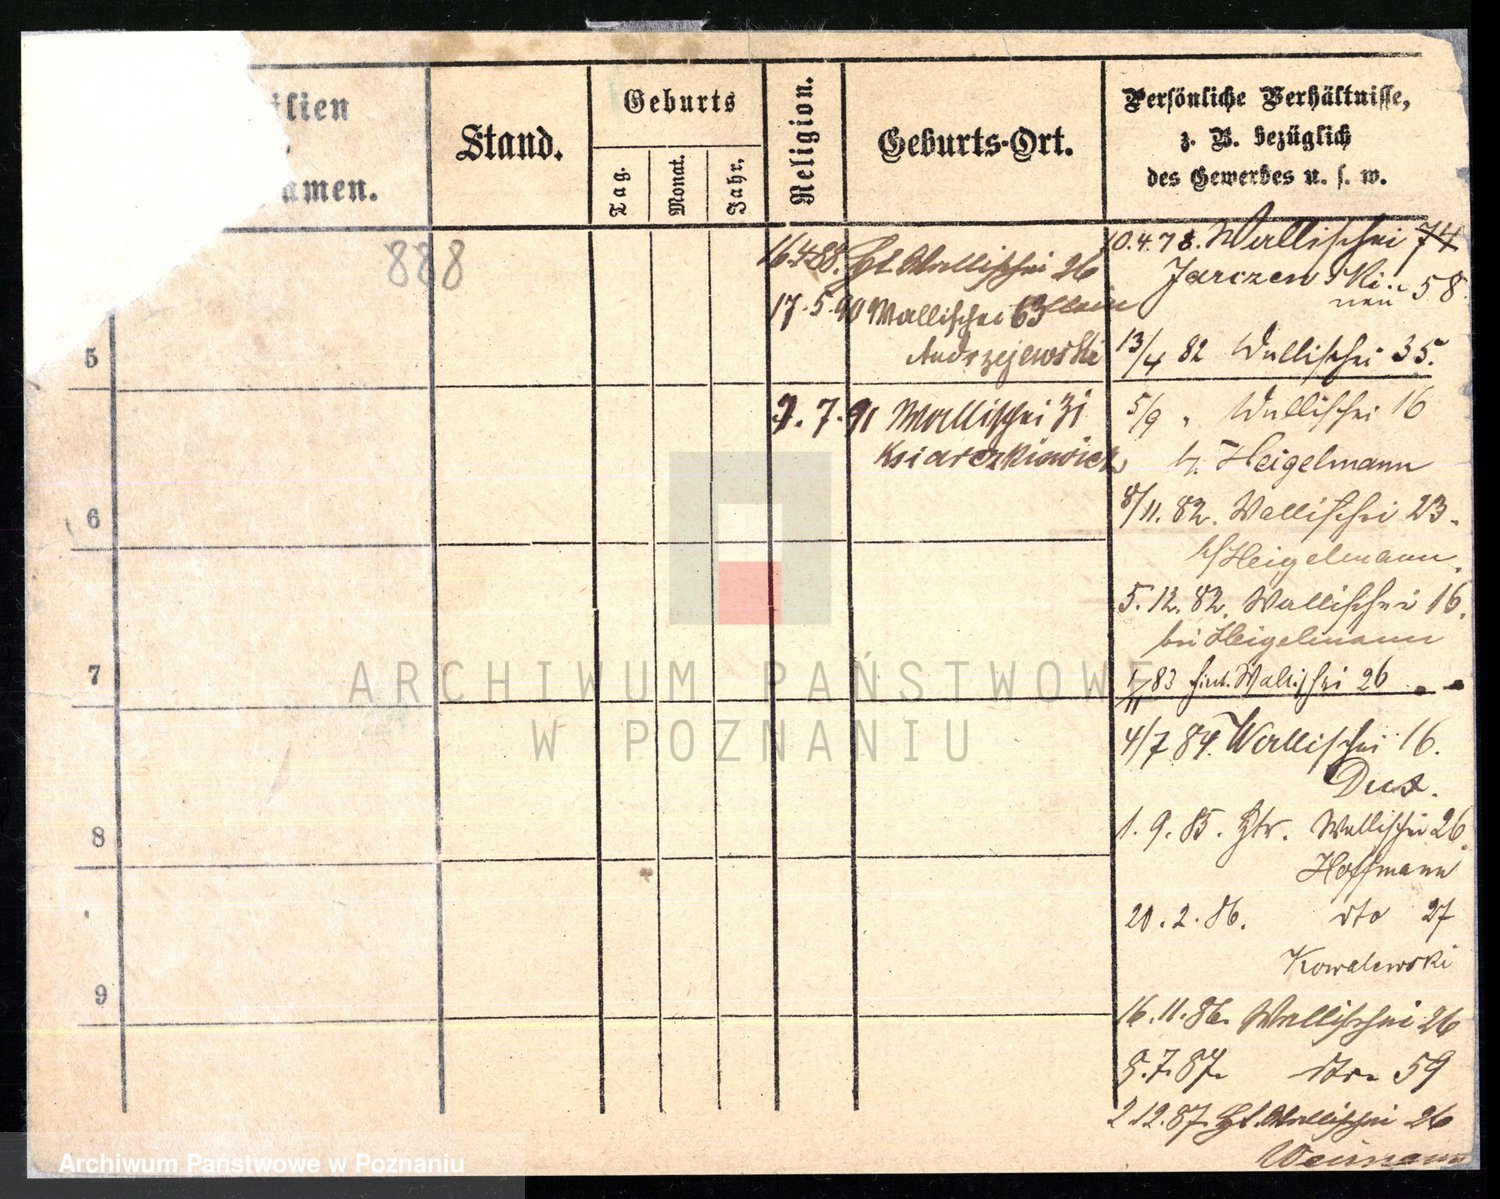 ilien
amen.
Stand.
Geburts
Tag.
Monat.
Jahr.
Religion.
Geburts-Ort.
Persönliche Verhältnisse,
z. B. bezüglich
des Gewerbes u. s. w.
888
5
6
7
8
9
16.4.88. Wallischei 26
17.5.90 Wallischei 63
Andrzejewski
7.91 Wallischei 31
Ksiarczkiewicz
10.4.78. Wallischei 74
Jarczen
neu 58
13/4 82 Wallischei 35.
5/9 " Wallischei 16
Heigelmann
8/11. 82. Wallischei 23.
b/Heigelmann.
5. 12. 82. Wallischei 16.
bei Heigelmann
83 Wallischei 26
4/7 84. Wallischei 16.
1. 9. 85. Wallischei 26.
Hoffmann
20. 2. 86. dto 27
Kowalewski
16. 11. 86. Wallischei 26
5.7.87. dto 59
2.12.87. Wallischei 26
ARCHIWUM PAŃSTWOWE
W POZNANIU
Archiwum Państwowe w Poznaniu